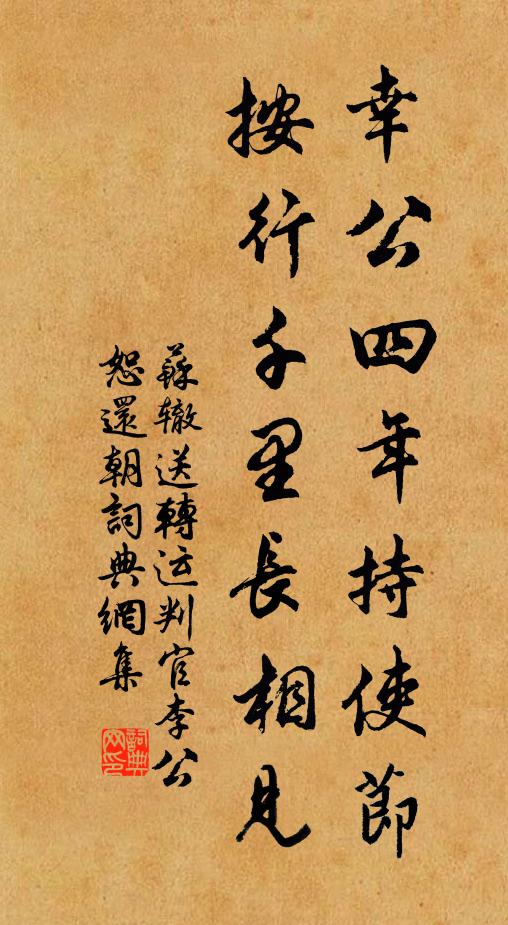 幸公四年持使節
按行千里長相見
蘇辙送轉运判官李公
恕還朝詞典網集
詞典网印